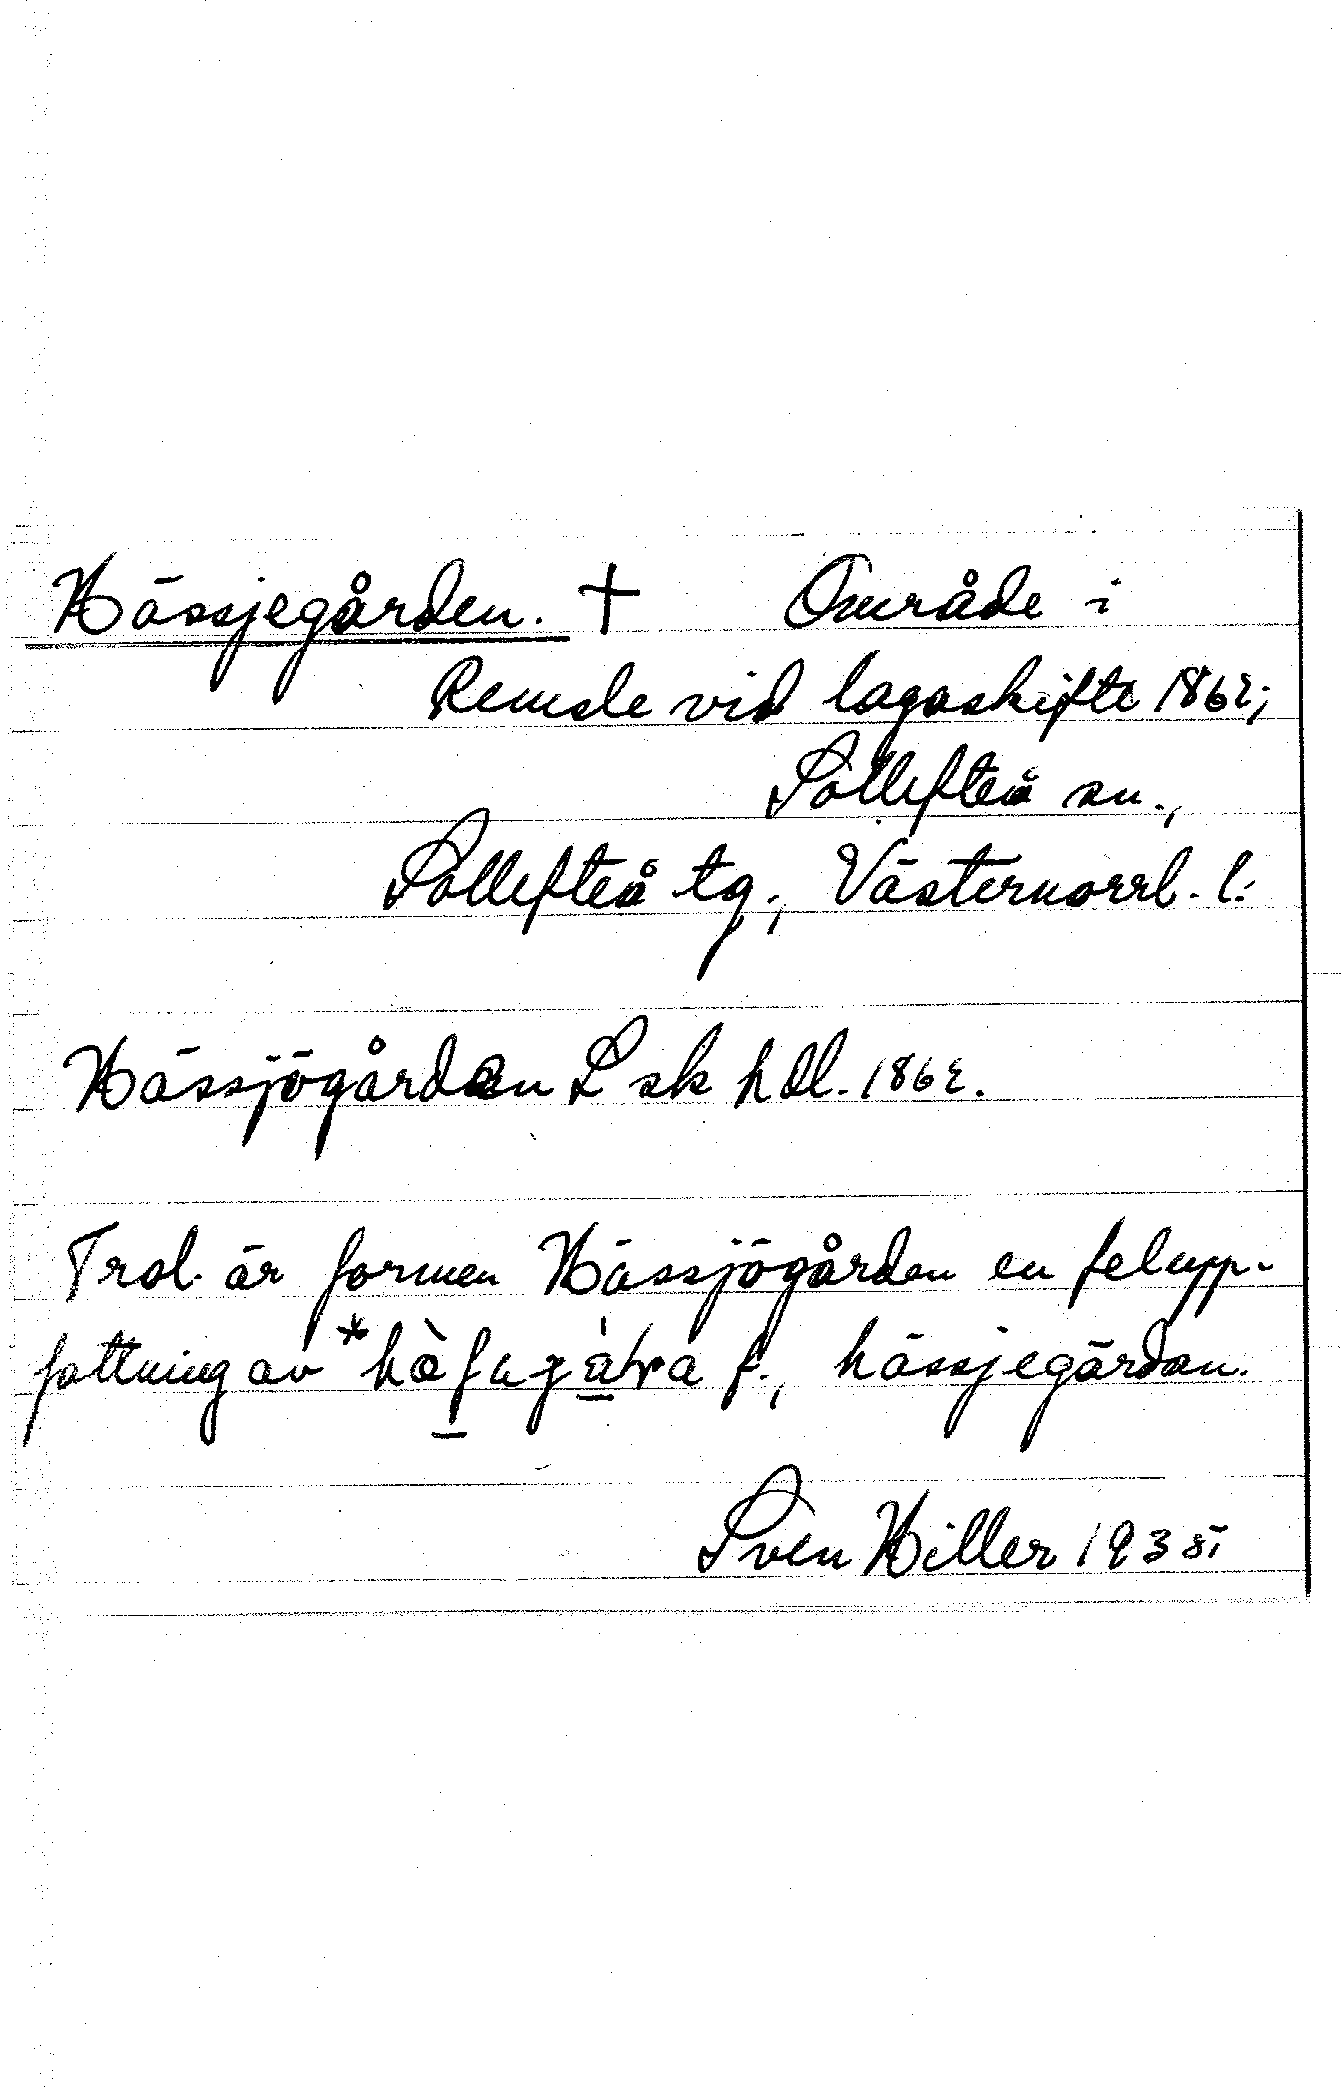 Hässjegården. † Område i
Remsle vid lagaskifte 1862;
Sollefteå sn.,
Sollefteå tg., Västernorrl. l.
Hässjögården L sk hdl. 1862.
Trol. är formen Hässjögården en felupp-
fattning av f., hässjegärdan.
Sven Hiller 1935